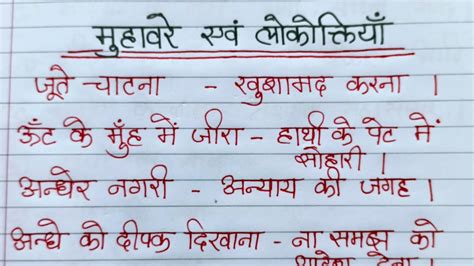 मुहावरे एवं लोकोक्तियाँ
जूते चाटना - खुशामद करना ।
ऊँट के मुँह में जीरा - हाथी के पेट में
सोहारी ।
अन्धेर नगरी - अन्याय की जगह ।
अन्धे को दीपक दिखाना - ना समझ को
देना ।